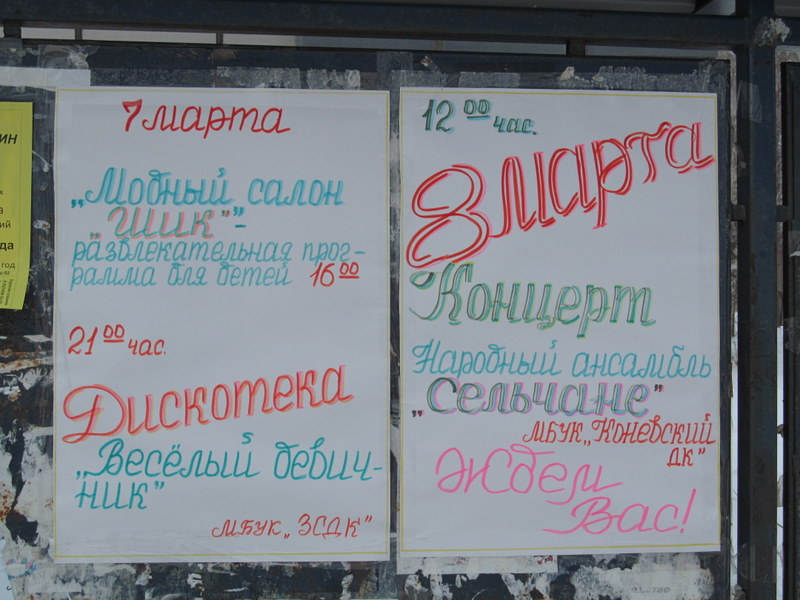 7 марта
„Модный салон
„Шик""-
развлекательная прог-
рамма для детей 16 00
21 00 час.
Дискотека
„Весёлый девич-
ник"
МБУК „ЗСДК"
12 00 час.
8 марта
Концерт
Народный ансамбль
„Сельчане"
МБУК „Коневский
ДК"
Ждем
Вас!
ин
а
ий
да
год